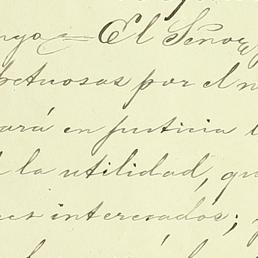 nya = El Señor
petuosas por el m
ará en justicia l
la utilidad, qu
es interesados;